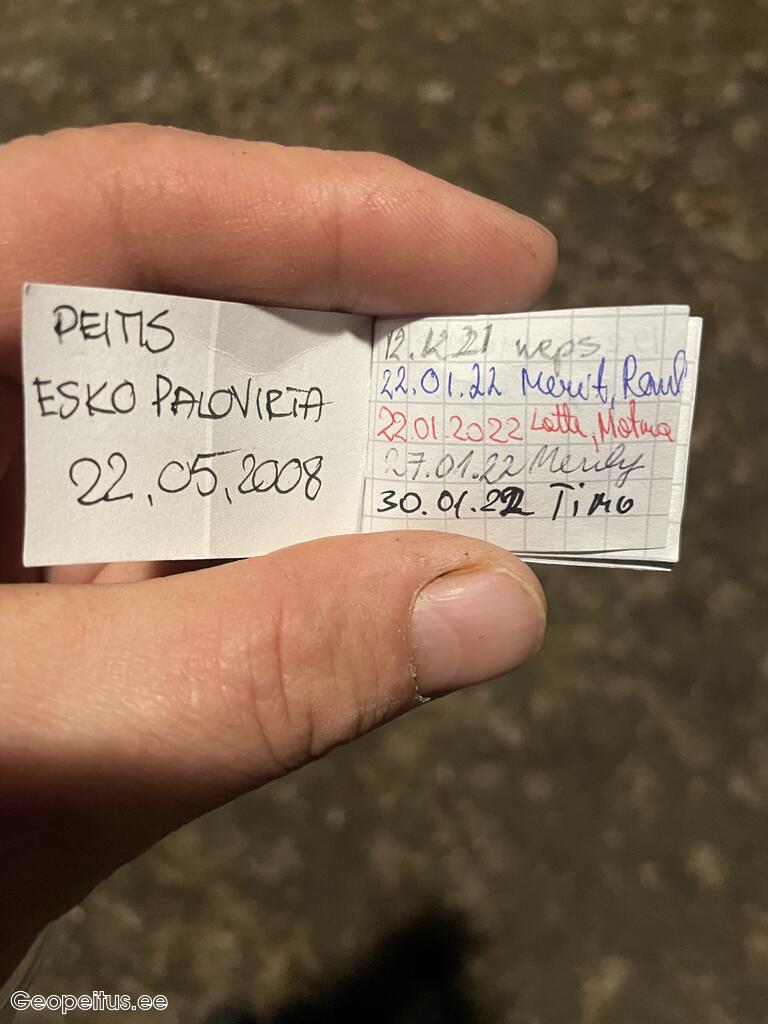 PEITIS
ESKO PALOVIRTA
22.05.2008
12.12.21 weps
22.01.22 Merit, Raul
22.01.2022 Lotta,
27.01.22 Merily
30.01.22 Timo
Geopeitus.ee